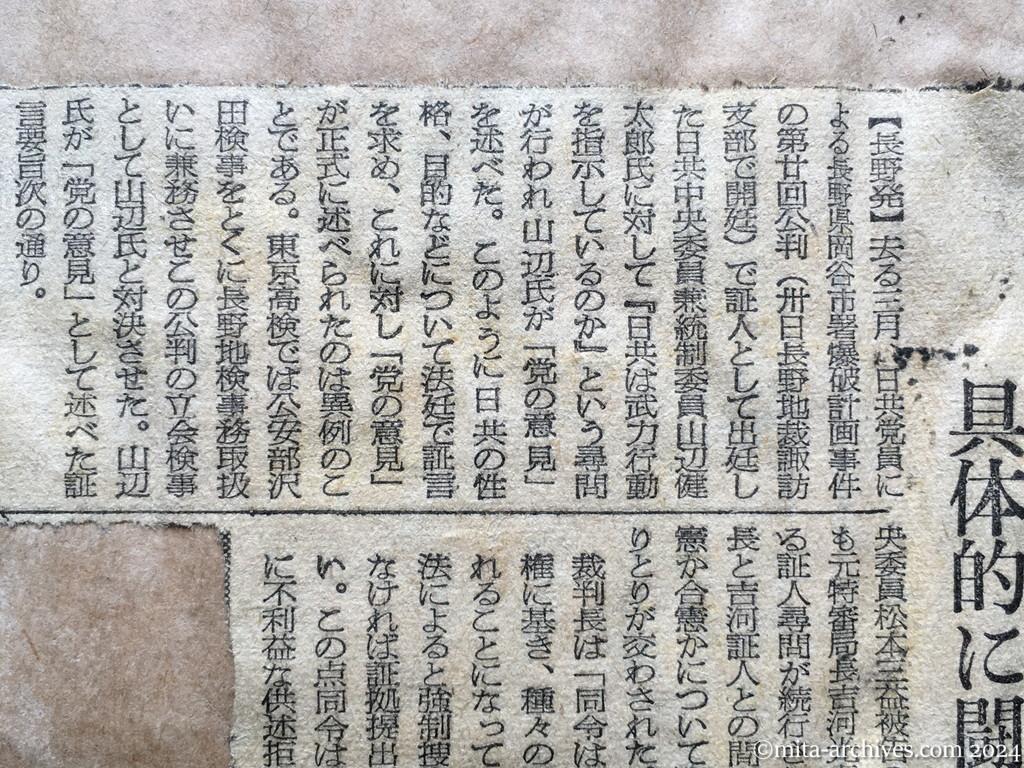 具体的に
【長野発】去る三月 日共党員に
よる長野県岡谷市署爆破計画事件
の第廿回公判（卅日長野地裁諏訪
支部で開廷）で証人として出廷し
た日共中央委員兼統制委員山辺健
太郎氏に対して『日共は武力行動
を指示しているのか』という尋問
が行われ山辺氏が「党の意見」
を述べた。このように日共の性
格、目的などについて法廷で証言
を求め、これに対し「党の意見」
が正式に述べられたのは異例のこ
とである。東京高検では公安部沢
田検事をとくに長野地検事務取扱
いに兼務させこの公判の立会検事
として山辺氏と対決させた。山辺
氏が「党の意見」として述べた証
言要旨次の通り。
央委員松本三益被
も元特審局長吉河
る証人尋問が続行
長と吉河証人との間
憲か合憲かについて
りとりが交わされた
裁判長は「同令は
権に基き、種々の
れることになって
法によると強制捜
なければ証拠提出
い。この点同令は
に不利益な供述拒
©mita-archives.com 2024